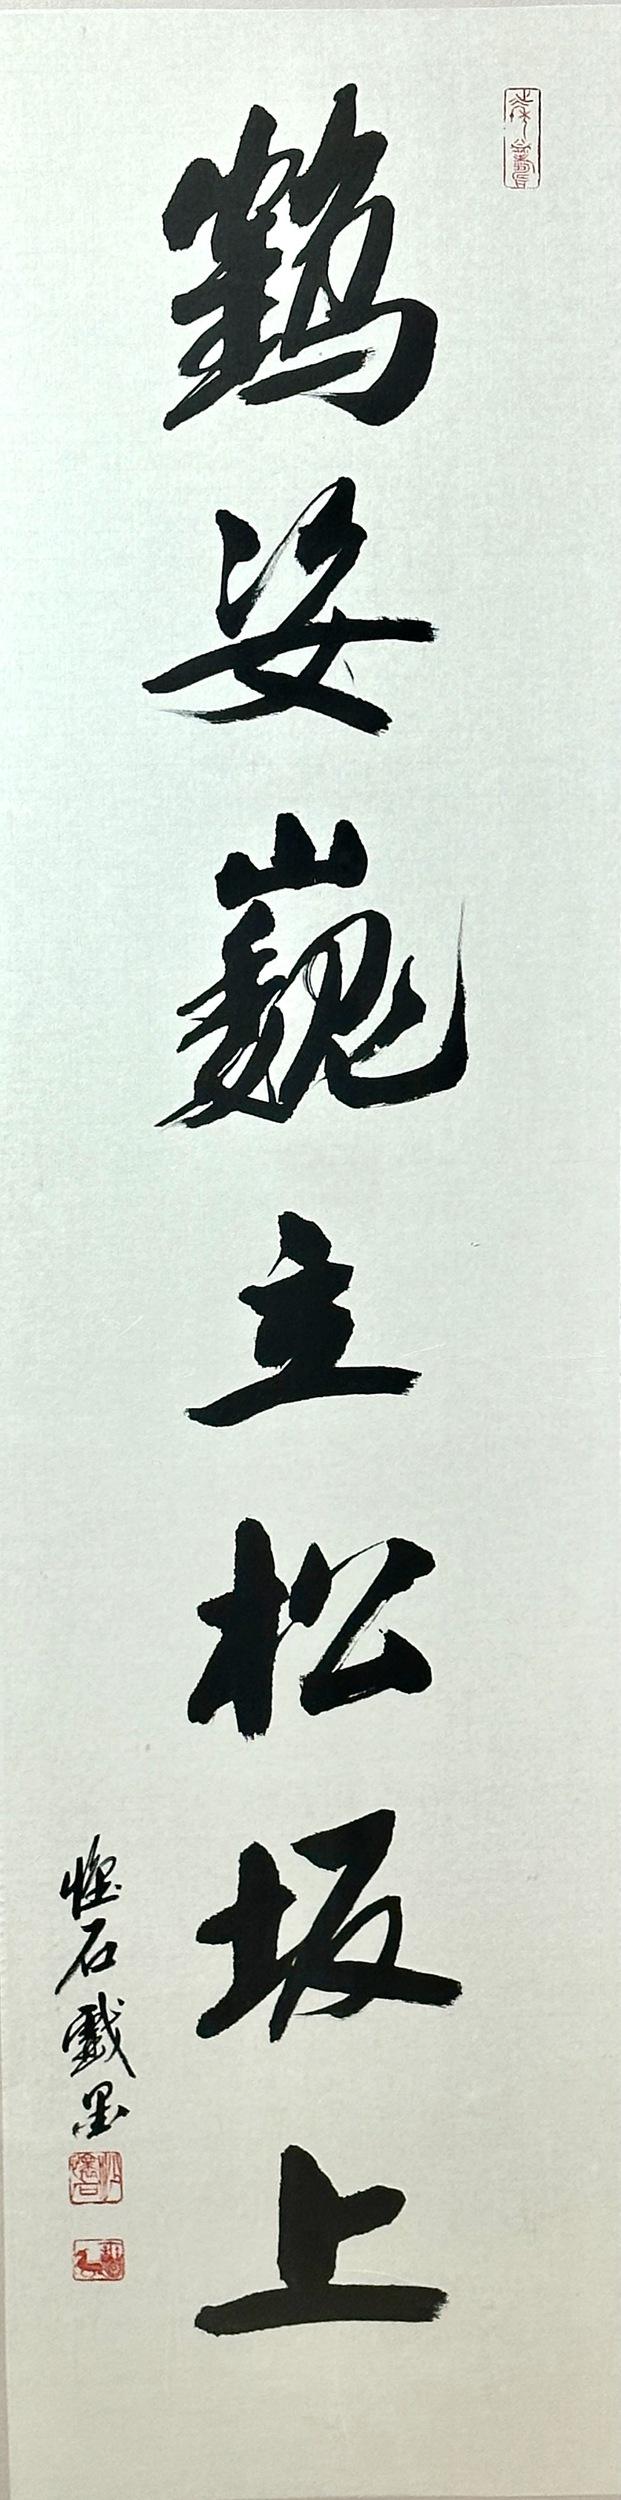 鶴姿巍立松坂上
懷石戲墨